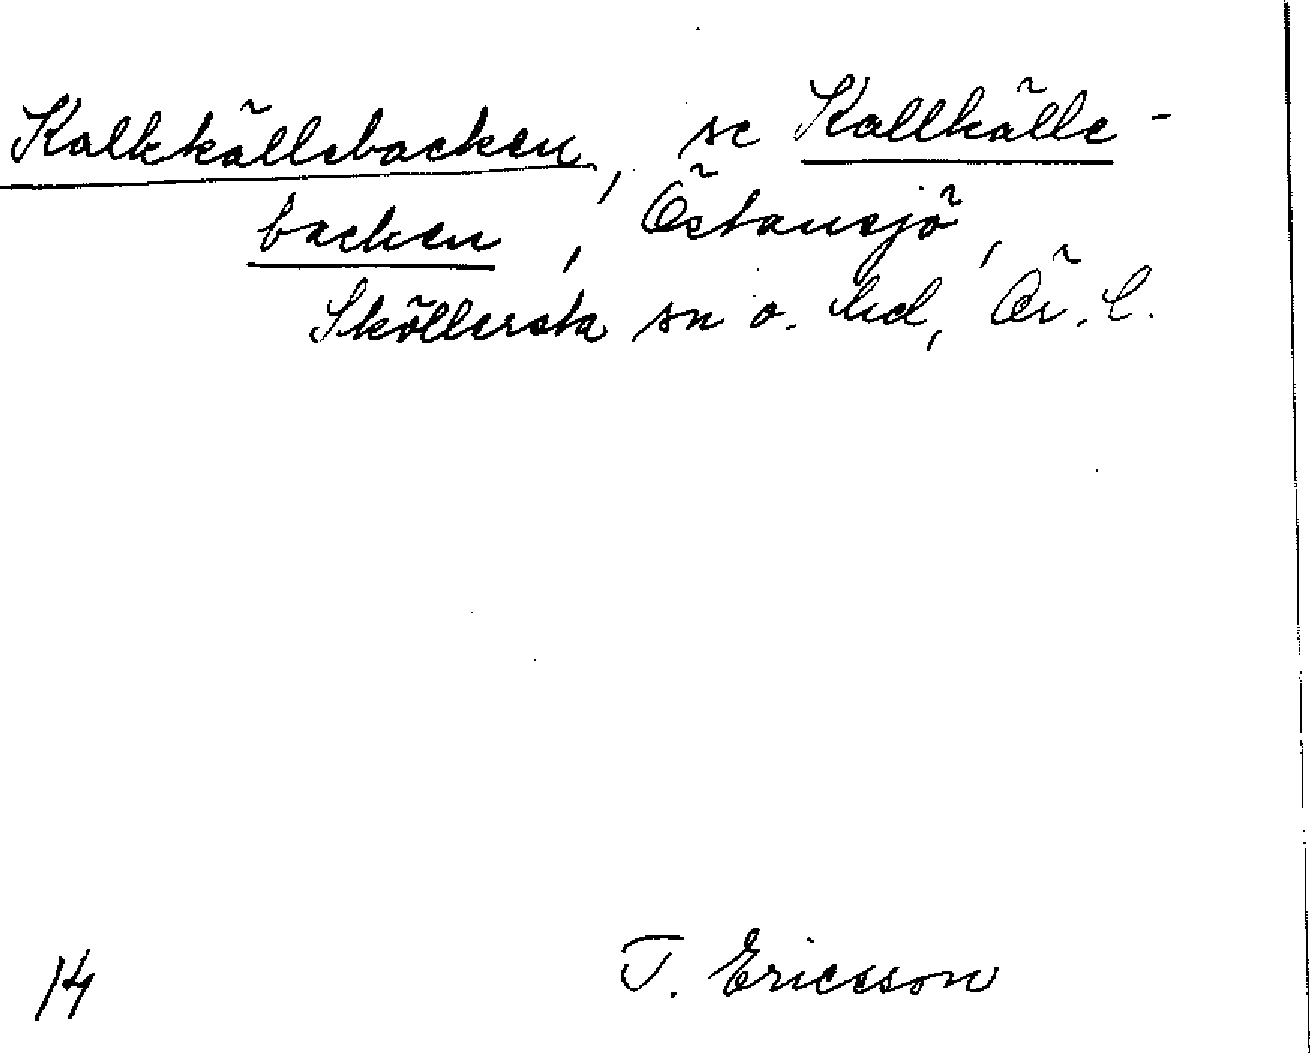 Kalkkällebacken, se Kallkälle-
backen, Östansjö,
Sköllersta sn o. hd, Ör. l.
14 T. Ericsson